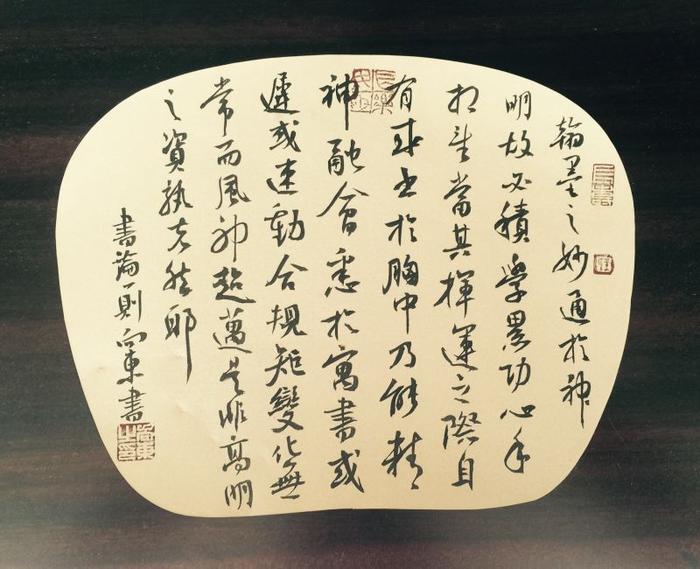 翰墨之妙通於神
明故必積學累功心手
相忘當其揮運之際自
有成書於胸中乃能精
神融會悉於寓書或
遲或速動合規矩變化無
常而風神超邁是非高明
之資孰克然耶
書論一則向東書